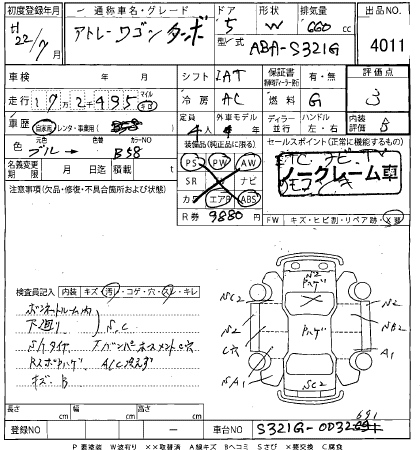 初度登録年月 一 通称車名・グレード ドア 形状 排気量 出品NO.
H22/7月 アトレーワゴン ターボ 5 W 660 cc 4011
型式 ABA-S321G
車検 年 月 シフト IAT 保証書 有・無 評価点
走行 17万2495 マイル キロ 冷房 AC 燃料 G 3
車歴 自家用 レンタ・事業用 定員 4人 外車モデル 年 ディーラー 並行 ハンドル 左・右 内装評価 B
色 ブルー 色替 カラーNO B58 装備品(純正品に限る) セールスポイント(正常に機能するもの)
名義変更期限 月 日迄 積載 t PS PW AW ETC ナビ TV
注意事項(欠品・修復・不具合箇所および状態) SR 革 ナビ ノークレーム車
カワ エアB ABS
R券 9880 円 FW キズ・ヒビ割・リペア跡・X要
検査員記入 内装 キズ・汚レ・コゲ・穴・スレ・キレ
ボンネットルーム内
下廻り S,C
Rスポハゲ A/C冷えず
キズ B
S2 ハゲ
SC2 S2 C穴 SA1
ハゲ SC2
S2 SB2 A1 SA1
長さ cm 幅 cm 高さ cm
登録NO ー 車台NO S321G-0032691
P 要塗装 W波有り ××取替済 A線キズ Bヘコミ Sさび ×要交換 C腐食